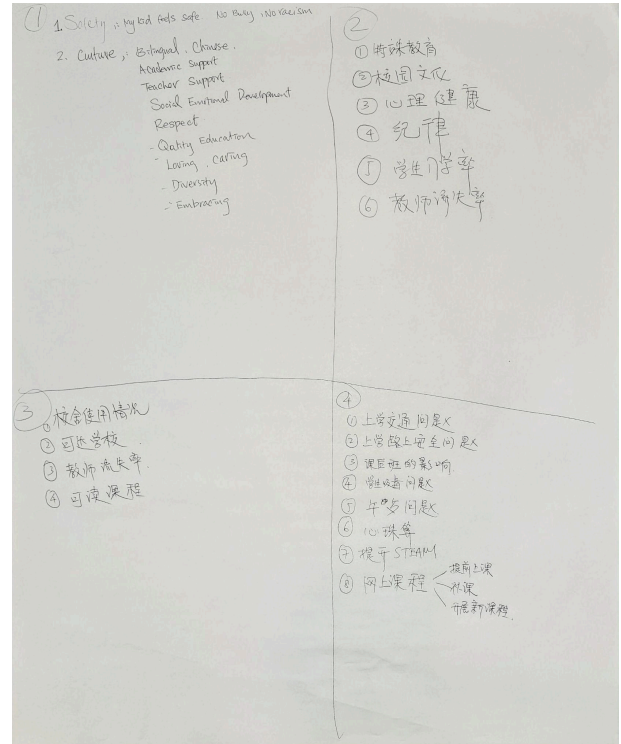 ①
1. Sofety ,: My kid feels safe No Bully . No racism
2. Culture ,: Bilingual . Chinese .
Academic Support
Teacher Support
Social Emotional Development
Respect
- Qality Education
- Loving . Caring
- Diversity
- Embracing
②
① 特殊教育
② 校园文化
③ 心理健康
④ 纪律
⑤ 学生入学率
⑥ 教师流失率
③
① 校舍使用情况
② 可选学校
③ 教师流失率.
④ 可读课程
④
① 上学交通问题
② 上学路上安全问题
③ 课后班的影响
④ 学生吸毒问题
⑤ 午餐问题
⑥ 心珠算
⑦ 提升STEAM
⑧ 网上课程
提前上课
补课
开展新课程.